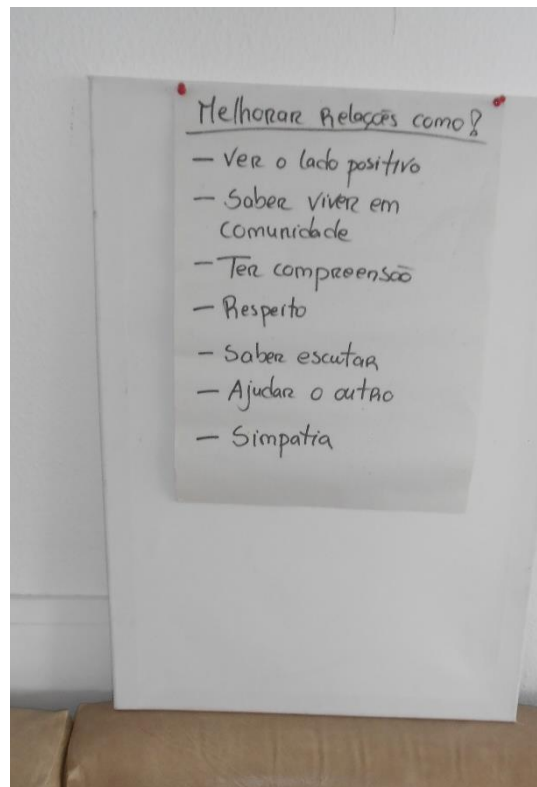 Melhorar Relações como?
— Ver o lado positivo
— Saber viver em
comunidade
— Ter compreensão
— Respeito
— Saber escutar
— Ajudar o outro
— Simpatia